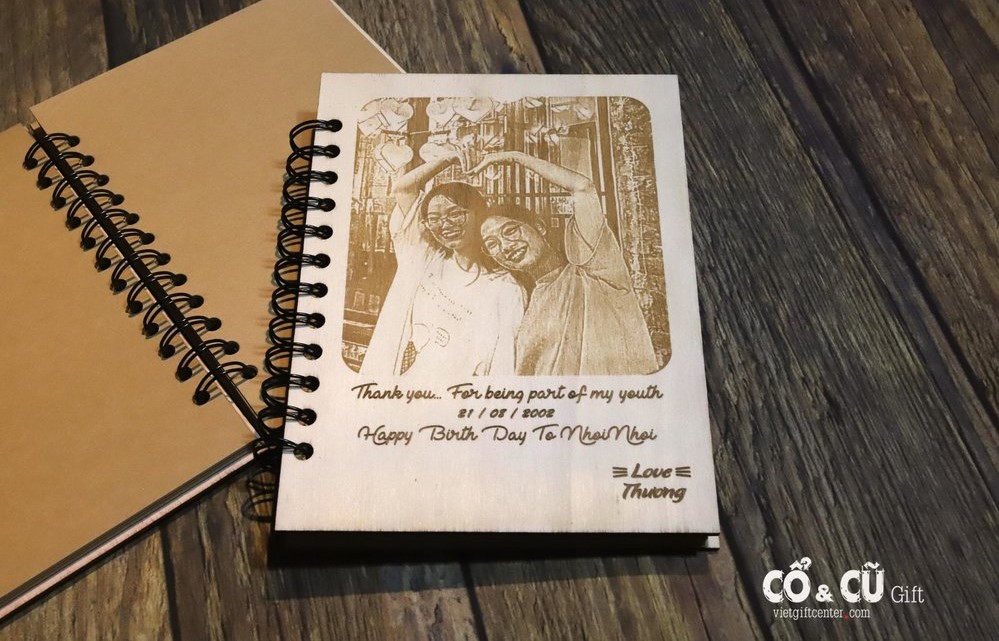 Thank you... For being part of my youth
21 / 08 / 2002
Happy Birth Day To NhoiNhoi
Love
Thương
CỔ & CŨ Gift
vietgiftcenter.com